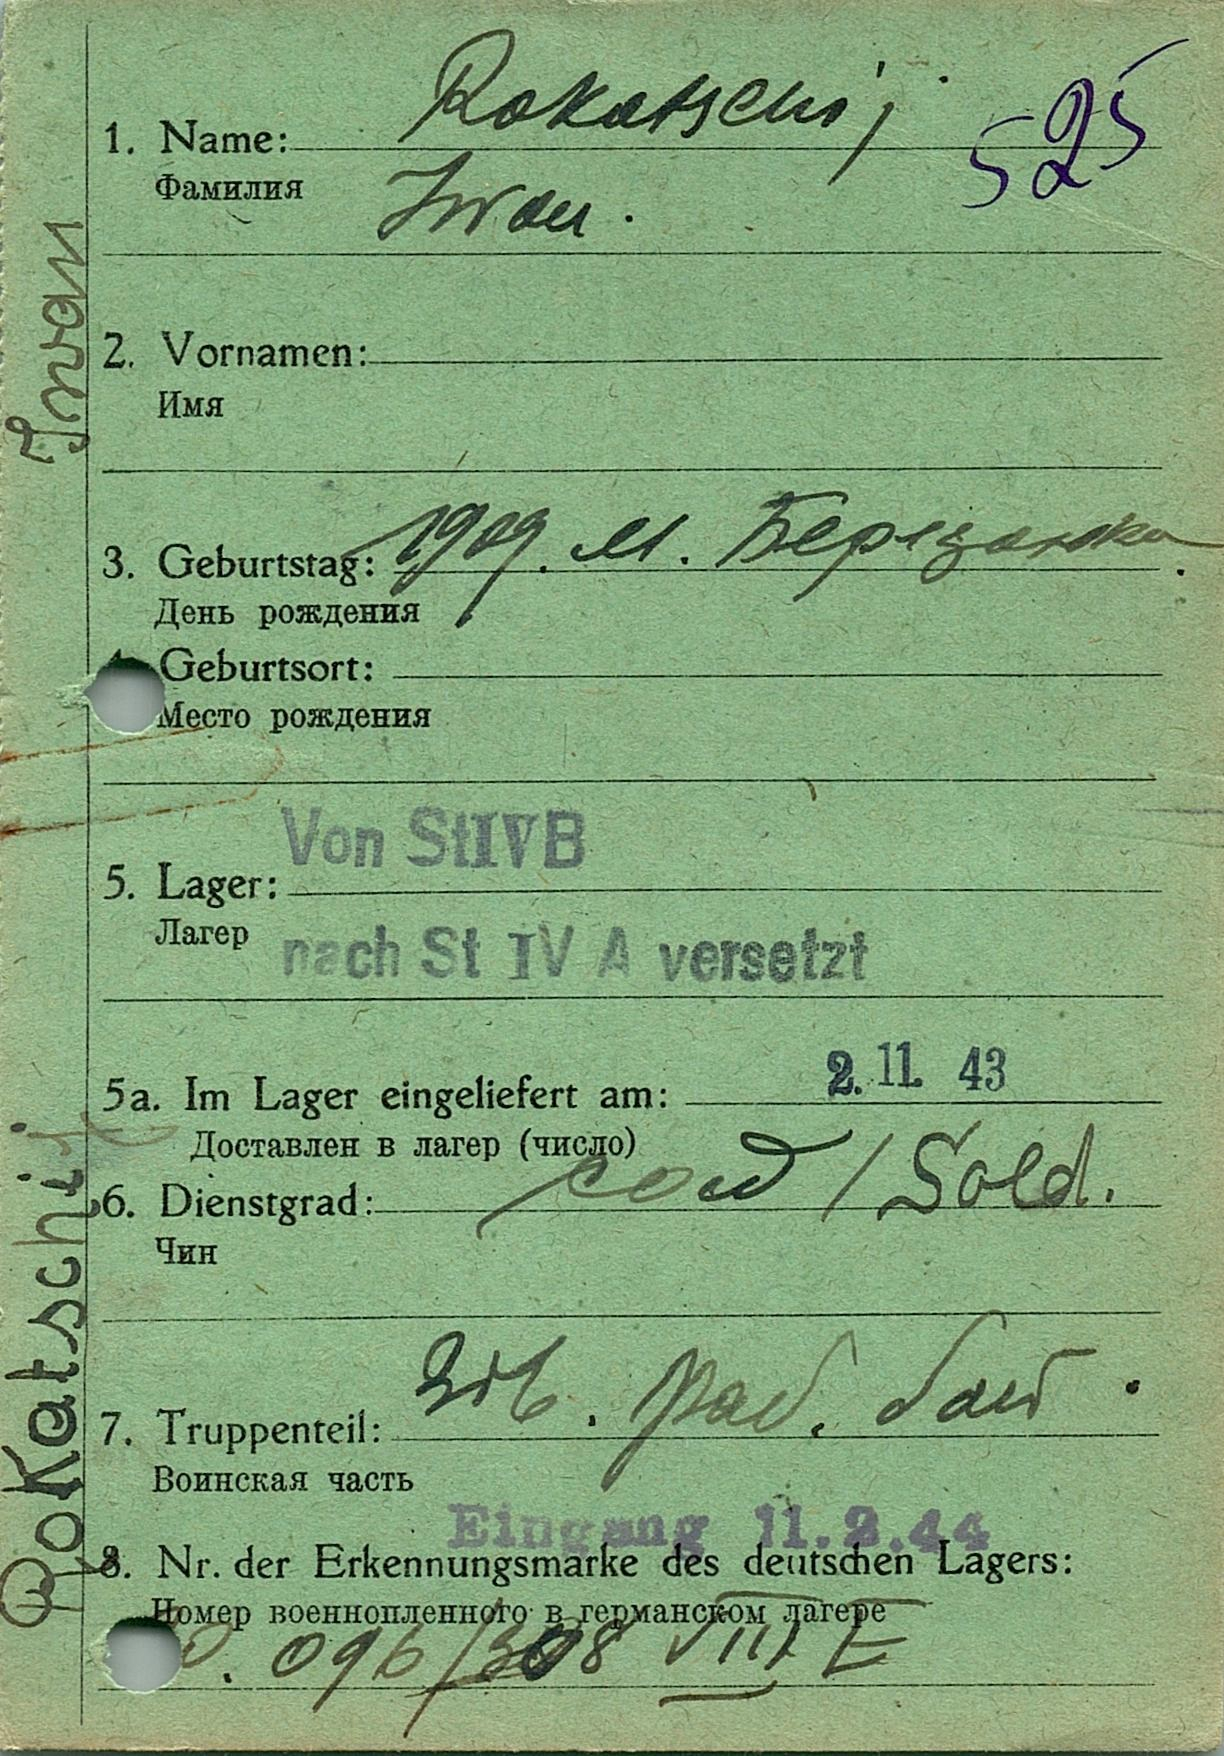 Rokatschij
525
1. Name:
Фамилия
Iwan.
2. Vornamen:
Имя
3. Geburtstag: 1909. м.
День рождения
Geburtsort:
Место рождения
Von St IV B
5. Lager:
Лагер
nach St IV A versetzt
5a. Im Lager eingeliefert am: 2. 11. 43
Доставлен в лагер (число)
6. Dienstgrad: / Sold.
Чин
7. Truppenteil: раб. бат.
Воинская часть
Eingang 11.2.44
8. Nr. der Erkennungsmarke des deutschen Lagers:
Номер военнопленного в германском лагере
096/308 VIII E
Rokatschij Iwan